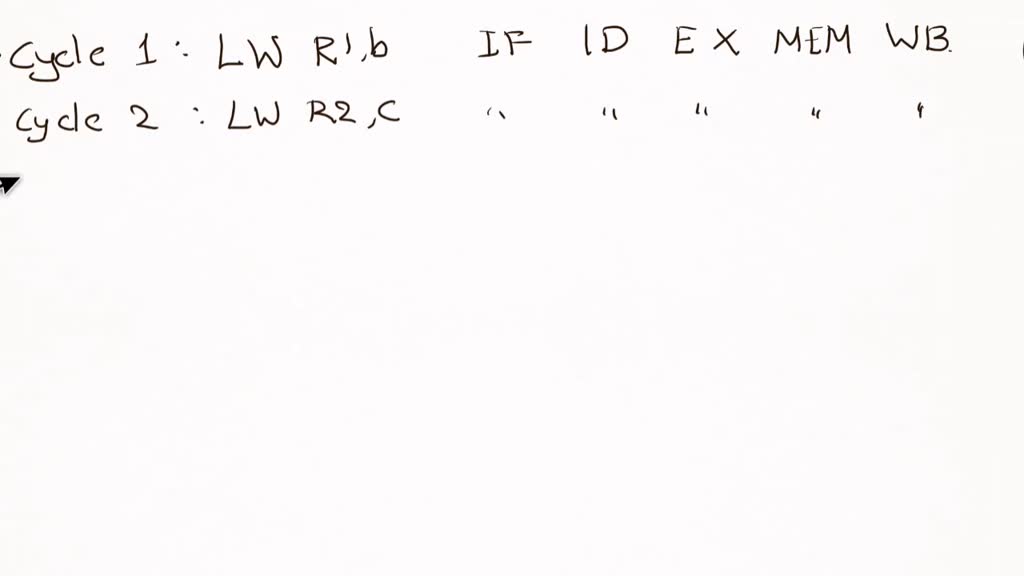 Cycle 1 : LW R1,b IF ID EX MEM WB.
Cycle 2 : LW R2,C " " " " "